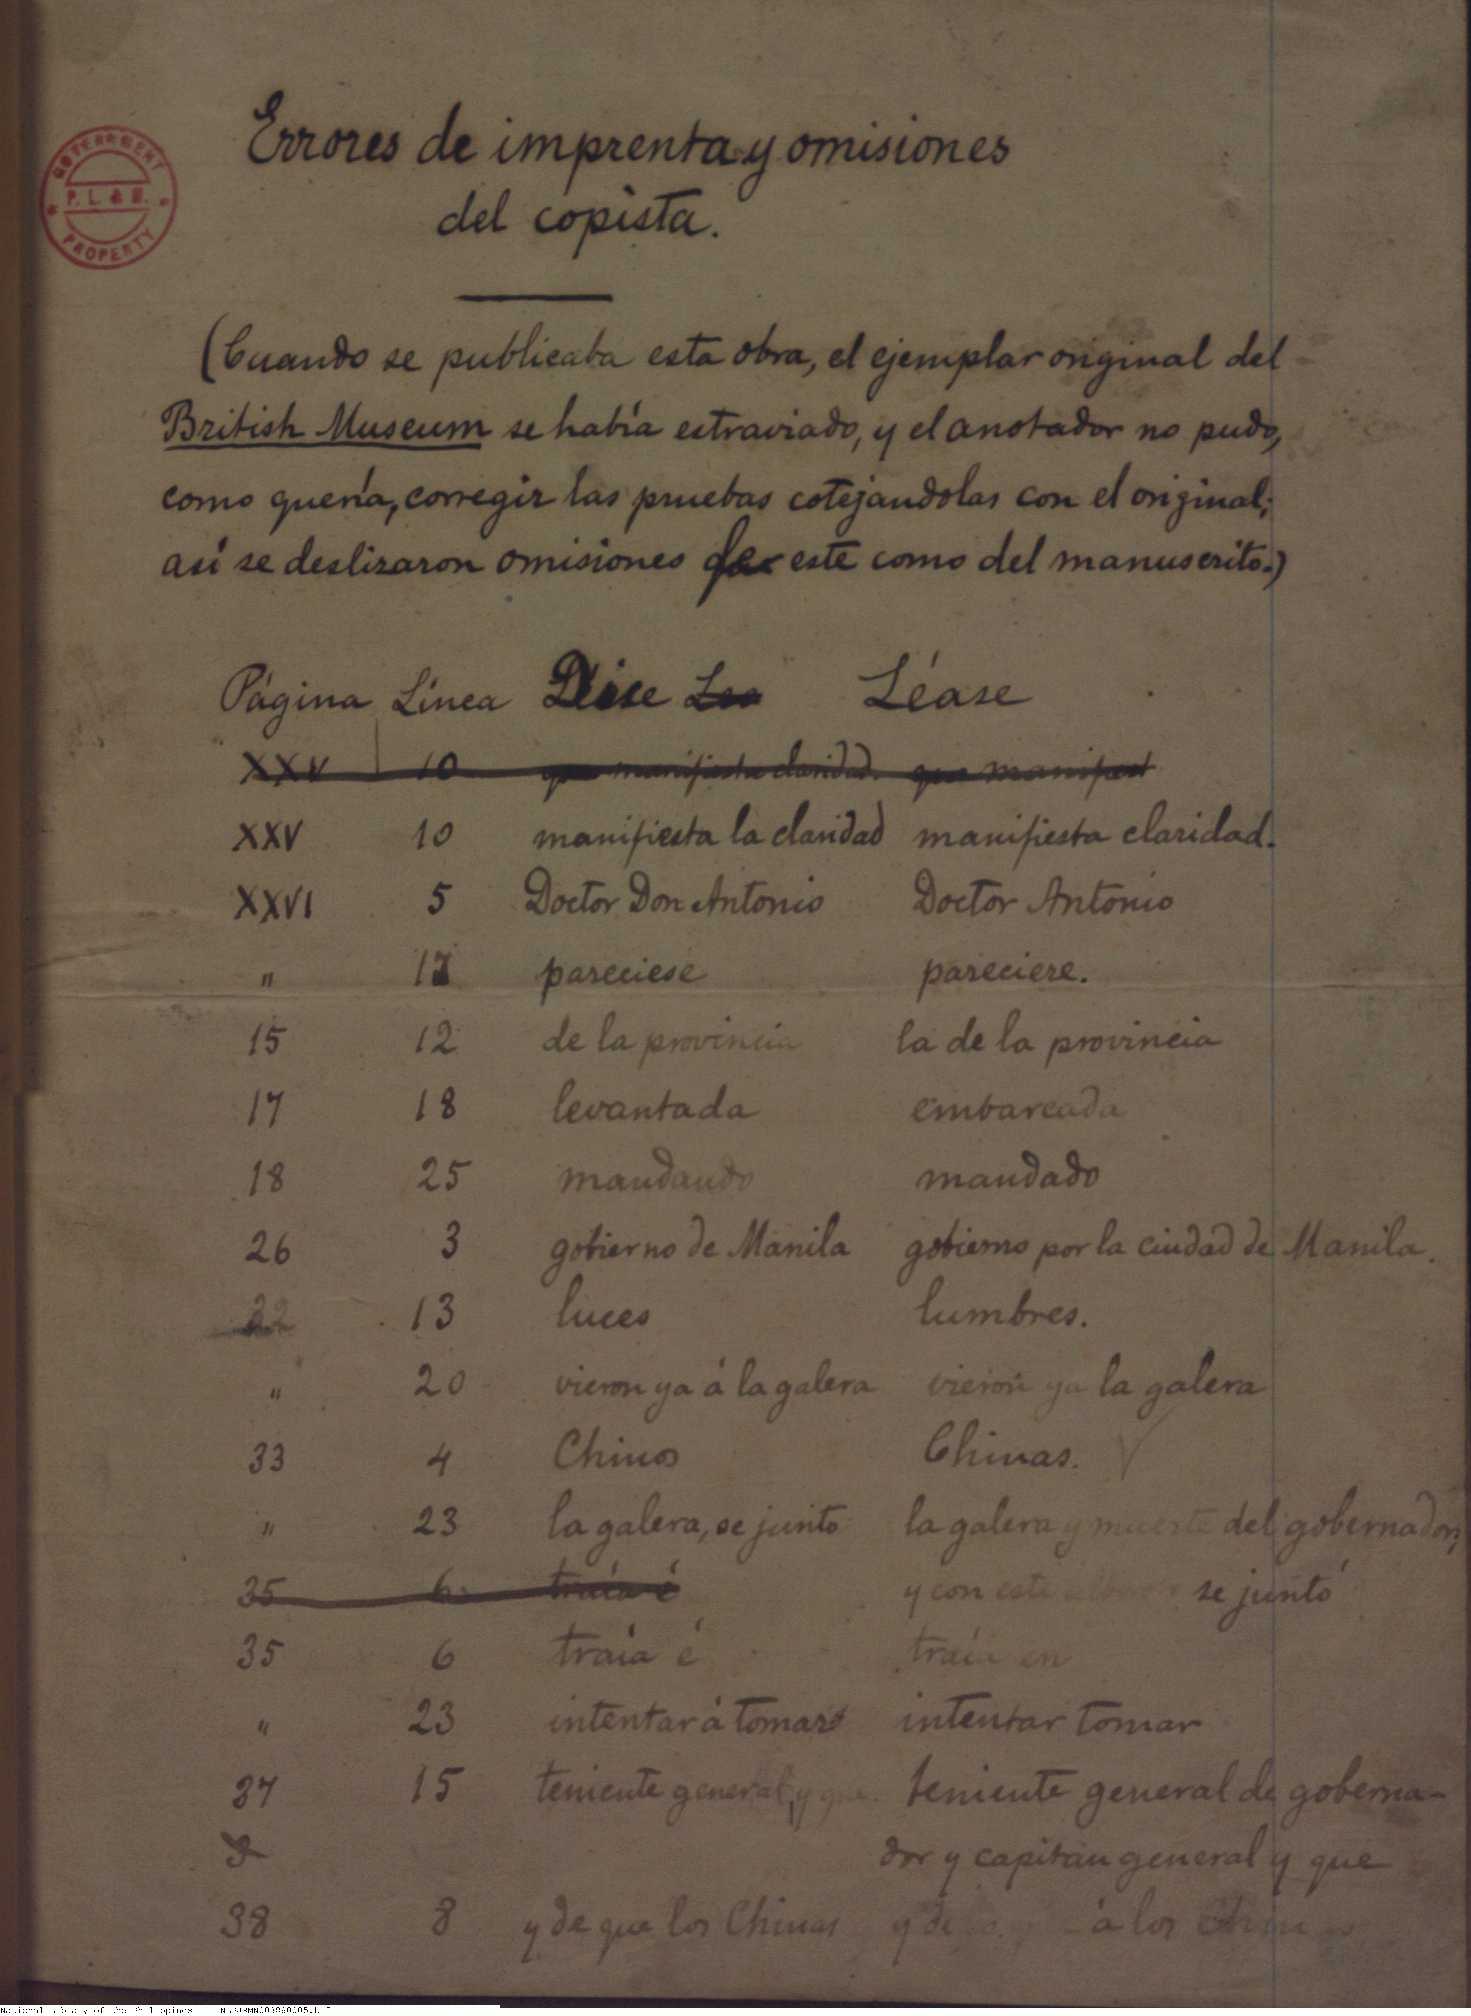 Errores de imprenta y omisiones
del copista.
GOVERNMENT
P. L. & M.
PROPERTY
(Cuando se publicaba esta obra, el ejemplar original del
British Museum se había estraviado, y el anotador no pudo,
como quería, corregir las pruebas cotejandolas con el original;
así se deslizaron omisiones de este como del manuscrito.)
Página Línea Dice Léase
XXV 10 que manifiesta claridad. que manifest
XXV 10 manifiesta la claridad manifiesta claridad.
XXVI 5 Doctor Don Antonio Doctor Antonio
" 17 pareciese pareciere.
15 12 de la provincia la de la provincia
17 18 levantada embarcada
18 25 mandando mandado
26 3 gobierno de Manila gobierno por la ciudad de Manila.
32 13 luces lumbres.
" 20 vieron ya á la galera vieron ya la galera
33 4 Chinos Chinas.
" 23 la galera, se junto la galera y muerte del gobernador,
35 6 traía é y con este se juntó
35 6 traía é traía en
" 23 intentar á tomar intentar tomar
37 15 teniente general, y que teniente general de goberna-
dor y capitan general y que
38 8 y de que los Chinas y de á los
National Library of the Philippines